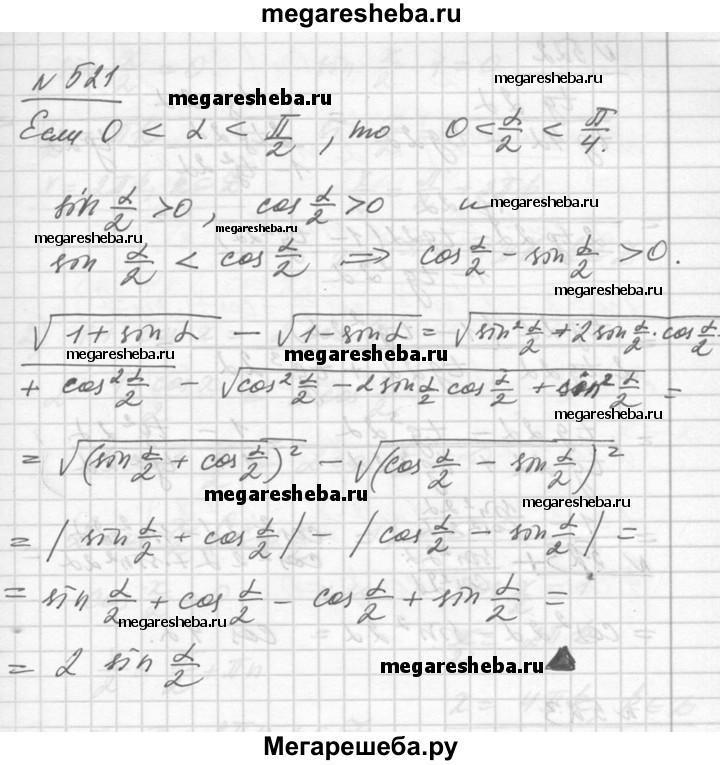 megaresheba.ru
N 521
megaresheba.ru
megaresheba.ru
Если 0 < α < π/2, то 0 < α/2 < π/4.
sin α/2 > 0, cos α/2 > 0 и
megaresheba.ru
megaresheba.ru
megaresheba.ru
sin α/2 < cos α/2 ⇒ cos α/2 - sin α/2 > 0.
megaresheba.ru
megaresheba.ru
√(1 + sin α) - √(1 - sin α) = √(sin² α/2 + 2 sin α/2 · cos α/2
megaresheba.ru
megaresheba.ru
megaresheba.ru
+ cos² α/2) - √(cos² α/2 - 2 sin α/2 cos α/2 + sin² α/2) =
megaresheba.ru
= √((sin α/2 + cos α/2)²) - √((cos α/2 - sin α/2)²)
megaresheba.ru
megaresheba.ru
= |sin α/2 + cos α/2| - |cos α/2 - sin α/2| =
= sin α/2 + cos α/2 - cos α/2 + sin α/2 =
megaresheba.ru
= 2 sin α/2
megaresheba.ru
Мегарешеба.ру